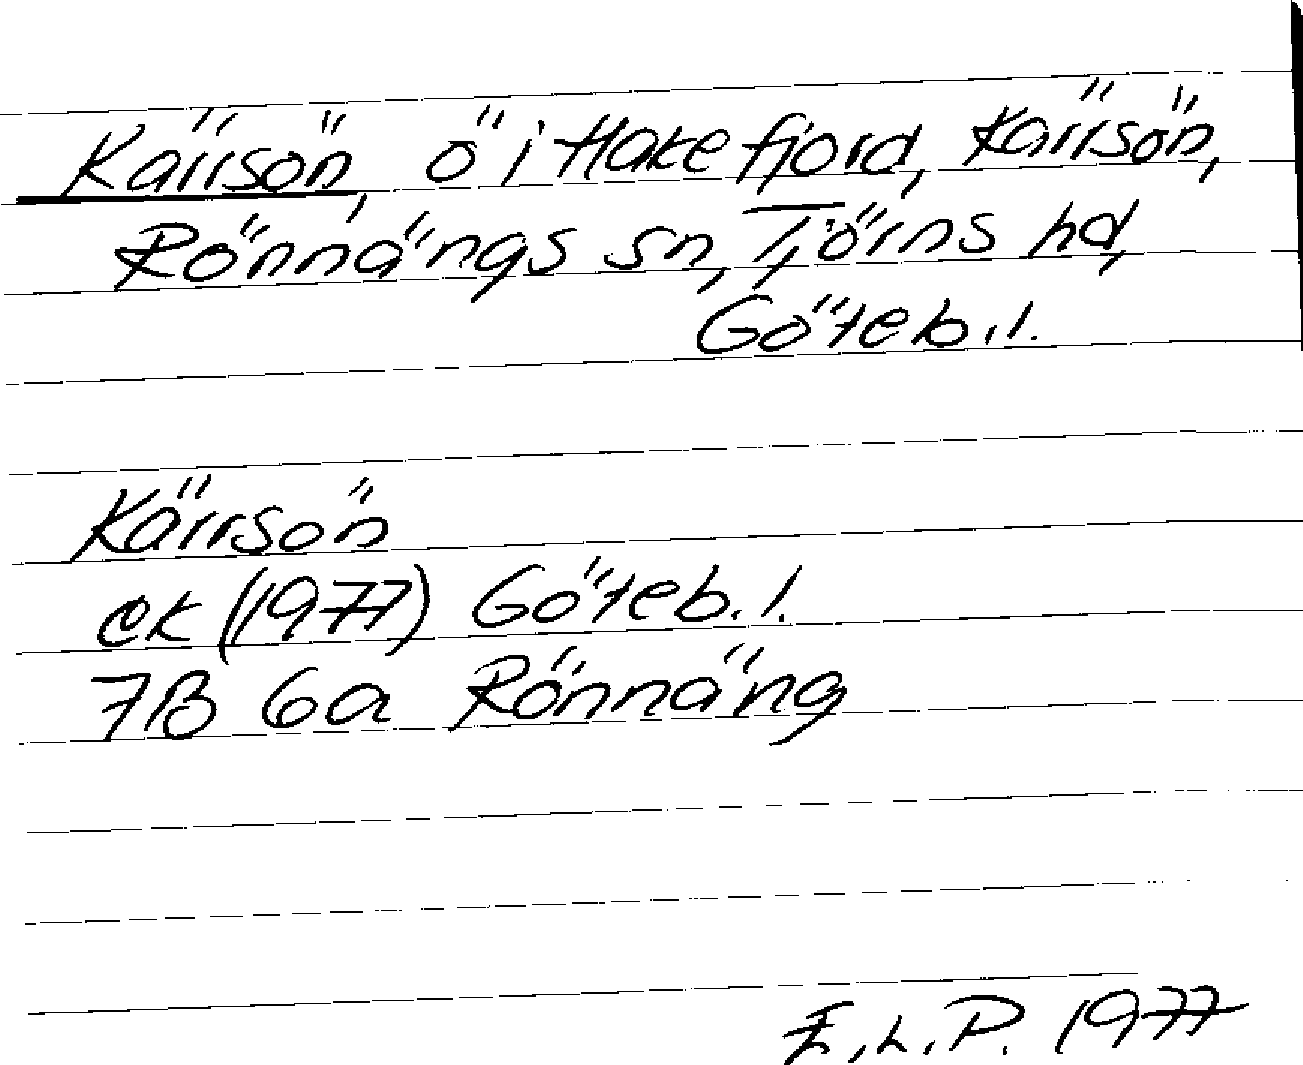 Kärrsön, ö i Hakefjord, Kärrsön,
Rönnängs sn, Tjörns hd,
Göteb.l.
Kärrsön
ek (1977) Göteb.l.
7B 6a Rönnäng
E.L.P. 1977